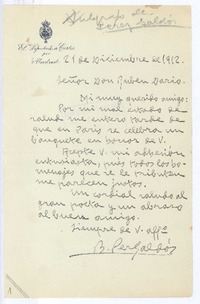 Autógrafo de
Perez Galdós
El Diputado a Cortes
por
Madrid
21 de Diciembre de 1912.
Señor Don Ruben Dario.
Mi muy querido amigo:
Por mi mal estado de
salud me entero tarde de
que en Paris se celebra un
banquete en honor de V.
Acepte V. mi adhesion
entusiasta, pues todos los ho-
menajes que se le tributen
me parecen justos.
Un cordial saludo al
gran poeta y un abrazo
al buen amigo.
Siempre de V. affº
B. Perez Galdós